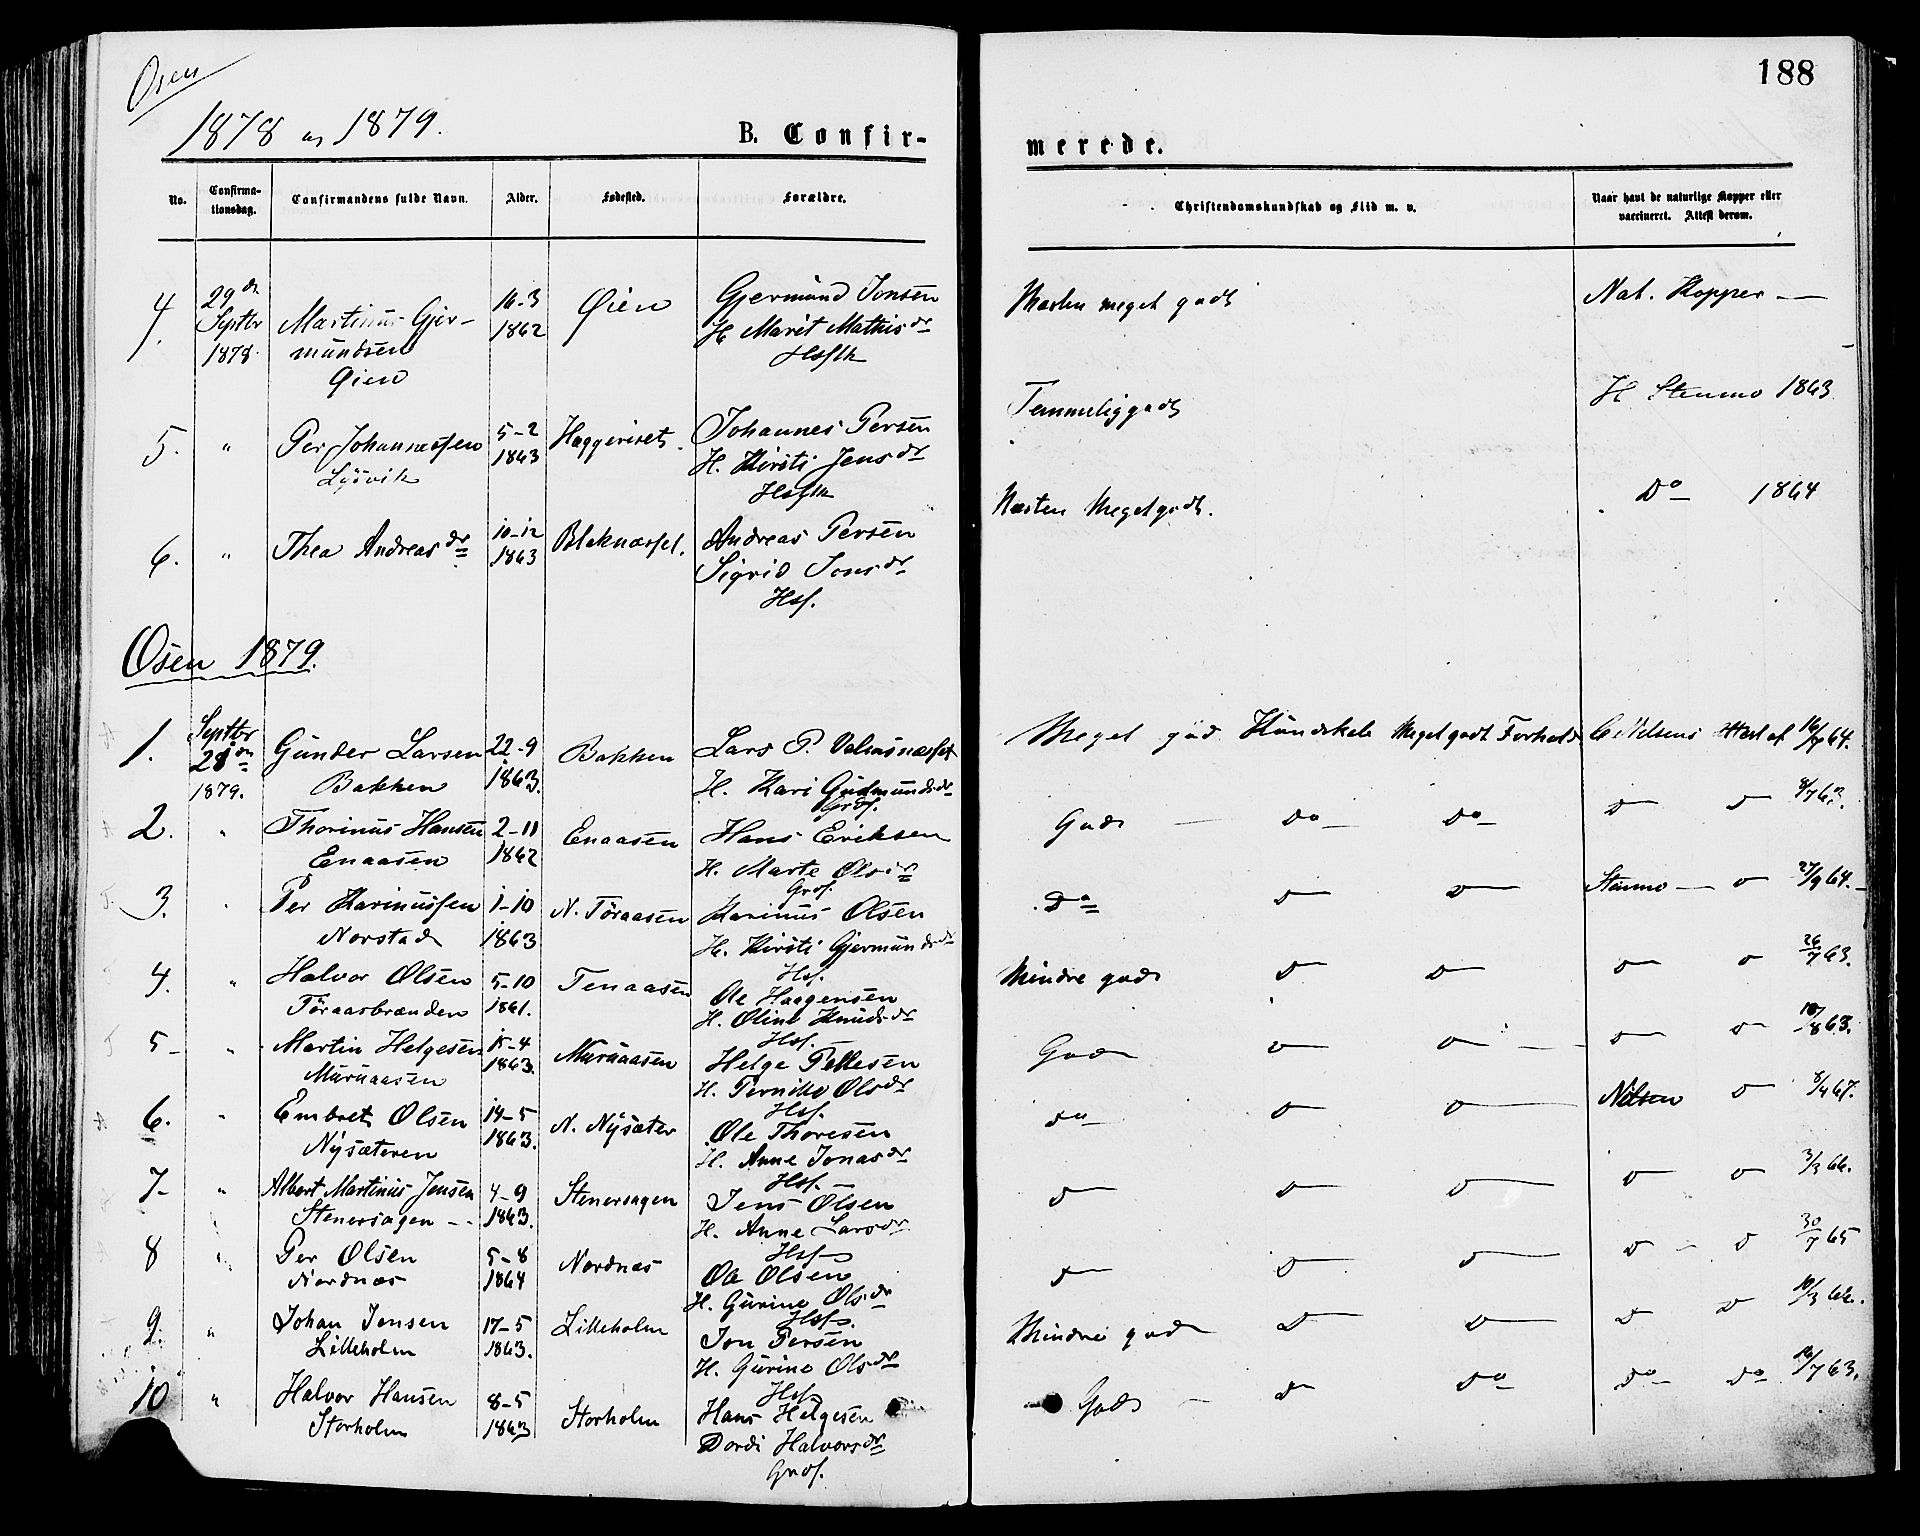 Osen
188
1878 og 1879.
B. Confirmerede.
No. Confirmationsdag. Confirmandens fulde Navn. Alder. Fødested. Forældre. Christendomskundskab og Flid m. v. Naar havt de naturlige Kopper eller vaccineret. Attest derom.
4. 29de Septbr 1878. Martinus Gjer-
mundsen
Øien
16-3
1862
Øien
Gjermund Jonsen
H. Marit Mathisdr
Hsflk
Næsten meget godt
Nat. Kopper —
5. " Per Johannessen
Lysvik
5-2
1863
Haggeriset
Johannes Persen
H. Kirsti Jensdr
Hsflk
Temmelig godt
H. Stenmo 1863
6. " Thea Andreasdr
10-12
1863
Blaknæsset.
Andreas Persen
Sigrid Jonsdr
Hsf.
Næsten Meget godt.
Do 1864
Osen 1879.
1. Septbr 28de 1879.
Gunder Larsen
Bakken
22-9
1863.
Bakken
Lars P. Valmsnæsset
H. Kari Gudmundsdr
Grdf.
Meget god Kundskab Meget godt Forhold
C Nilsens Attest af 16/7 64.
2. " Thorinus Hansen
Enaasen
2-11
1862
Enaasen
Hans Eriksen
H. Marte Olsdr
Grdf.
God — Do Do
D D 8/7 63.
3. " Per Karinussen
Norstad
1-10
1863
N. Töraasen
Karinus Olsen
H. Kirsti Gjermundsdr
Hsf.
Do D D
Stenmo — D 27/9 64.
4. " Halvor Olsen
Töraasbrænden
5-10
1861.
Tenaasen
Ole Haagensen
H. Oline Knudsdr
Hsf.
Mindre god D D
D D 26/7 63.
5- " Martin Helgesen
Muruaasen
15-4
1863.
Muruaasen
Helge Pellesen
H. Pernille Olsdr
Hsf.
God D D
D D 18/8 63.
6. " Embret Olsen
Nysæteren
14-5
1863.
N. Nysæter
Ole Thoresen
H. Anne Jonasdr
Hsf.
do D D
Nilsen D 8/4 67.
7- " Albert Martinus Jensen
Stenersagen
4-9
1863.
Stenersagen
Jens Olsen
H. Anne Larsdr
Hsf
D D D
D D 3/3 66.
8 " Per Olsen
Nordnæs
5-8
1864
Nordnæs
Ole Olsen
H. Gurine Olsdr
Hsf.
D D D
D D 30/7 65
9. " Johan Jonsen
Lilleholm
17-5
1863.
Lilleholm
Jon Persen
H. Gurine Olsdr
Hsf
Mindre god D D
D D 10/3 66.
10 " Halvor Hansen
Storholm
8-5
1863
Storholm
Hans Helgesen
Dordi Halvorsdr
Grdf.
God — D Do
Do Do 16/7 63.